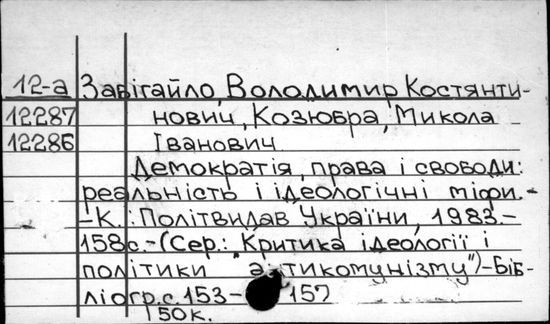 12-а Завігайло, Володимир Костянти-
12287 нович, Козюбра, Микола
12286 Іванович
Демократія, права і свободи:
реальність і ідеологічні міфи.-
-К.: Політвидав України, 1983.-
158с.-(Сер.: "Критика ідеології і
політики антикомунізму")-Біб-
ліогр.с.153-157
50к.